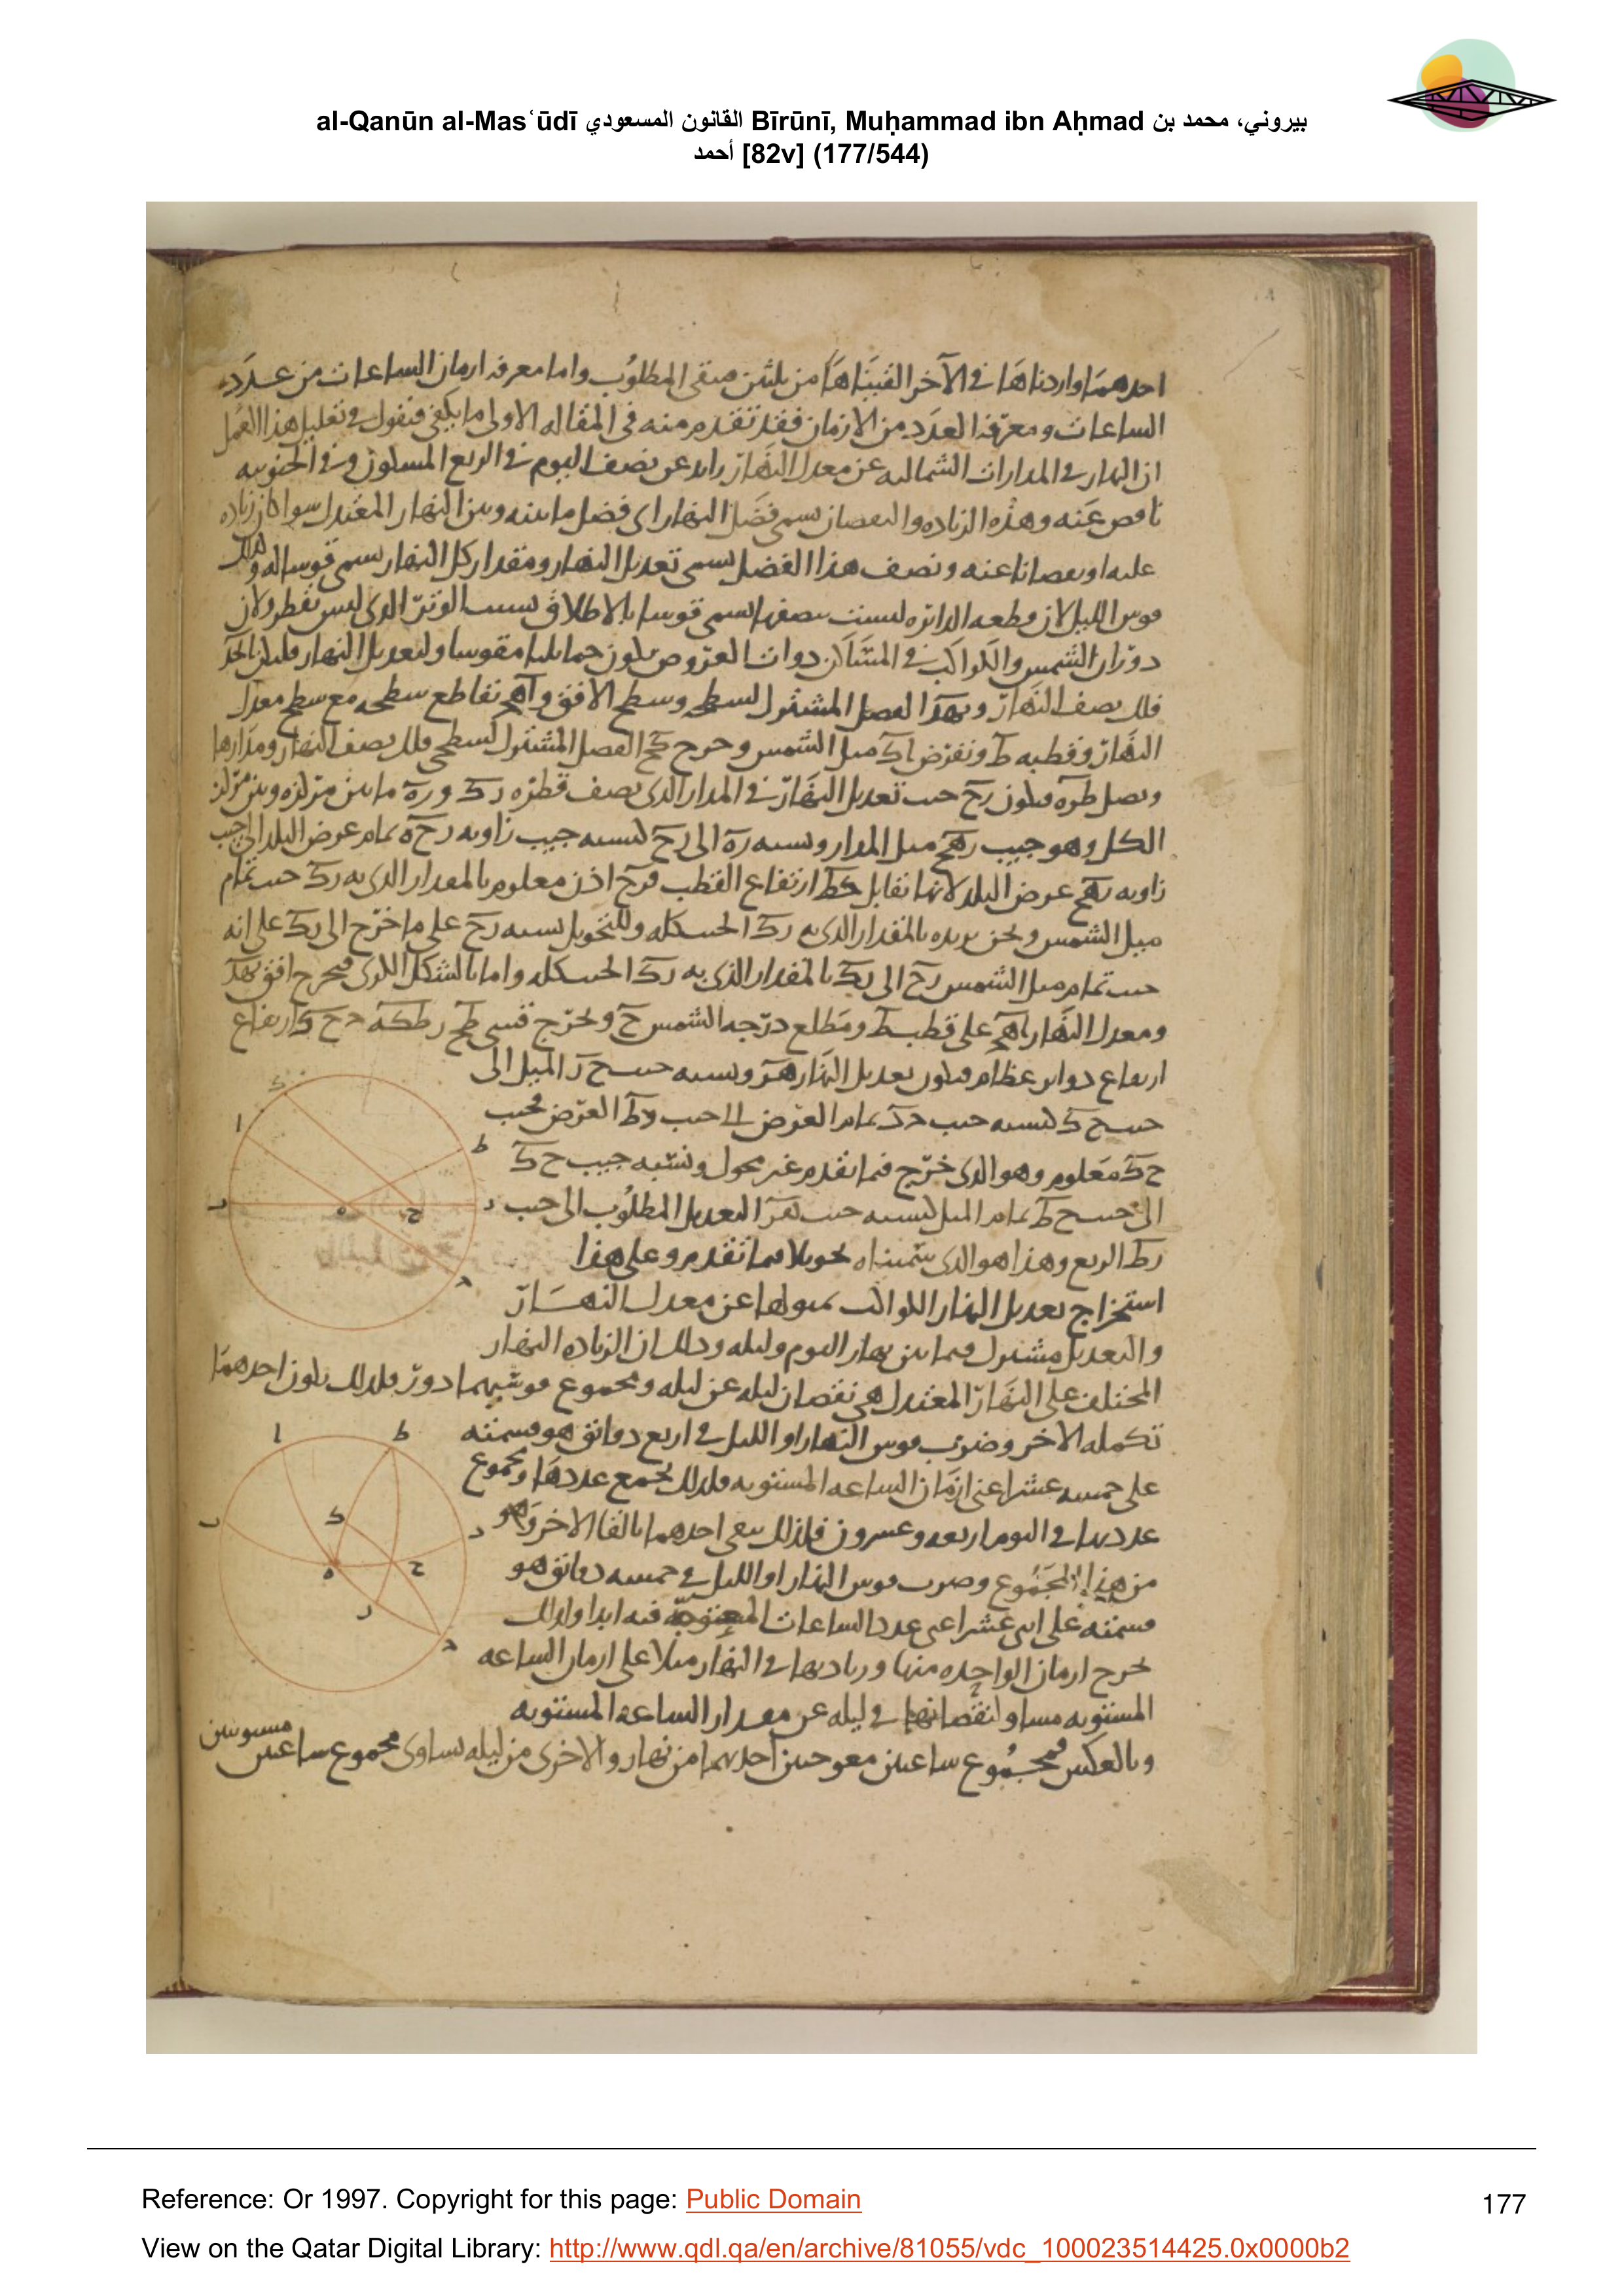 al-Qanūn al-Masʿūdī القانون المسعودي Bīrūnī, Muḥammad ibn Aḥmad بيروني، محمد بن
أحمد [82v] (177/544)
احدهما واردناها في الآخر القيناها من ثلثين فيبقى المطلوب واما معرفه ازمان الساعات من عدد
الساعات ومعرفه العدد من الازمان فقد تقدم منه في المقاله الاولى ما يكفي فنقول في تعليل هذا العمل
ان النهار في المدارات الشماليه عن معدل النهار زايد عن نصف اليوم في الربع المسكون وفي الجنوبيه
ناقص عنه وهذه الزياده والنقصان يسمى فضل النهار اى فضل ما بينه وبين النهار المعتدل سوا كان زياده
عليه او نقصانا عنه ونصف هذا الفضل يسمى تعديل النهار ومقدار كل النهار يسمى قوسا له
قوس الليل لان قطعه الدائره ليست بنصفها يسمى قوسا بالاطلاق بسبب الوتر الذى ليس بقطر ولان
دوران الشمس والكواكب في المساكن ذوات العروض يكون حمايليا مقوسا ولتعديل النهار فليكن ابجد
فلك نصف النهار وبهد الفصل المشترك لسطحه وسطح الافق واهج تقاطع سطحه مع سطح معدل
النهار وقطبه ط ونفرض اك ميل الشمس ونخرج كح الفصل المشترك لسطحى فلك نصف النهار ومدارها
ونصل طره فيكون رح جيب تعديل النهار في المدار الذى نصف قطره رك وره ما بين مركزه وبين مركز
الكل وهو جيب رهح ميل المدار ونسبه ره الى رح كنسبه جيب زاويه رحه تمام عرض البلد الى جيب
زاويه رهح عرض البلد لانها تقابل ارتفاع القطب فرح اذن معلوم بالمقدار الذى به رك جيب تمام
ميل الشمس ونحن نريده بالمقدار الذى به رك الجيب كله وللتحويل نسبه رح على ما خرج الى رك على انه
جيب تمام ميل الشمس رح الى رك بالمقدار الذى به رك الجيب كله واما بالشكل الكرى فيخرج افق بهد
ومعدل النهار اهج على قطب ط ومطلع درجه الشمس ح ونخرج قسى
ارباع دواير عظام فيكون تعديل النهار هر ونسبه جيب ح ر الميل الى
جيب ح ك كنسبه جيب تمام العرض الى جيب العرض فجيب
ح ك معلوم وهو الذى خرج فيما تقدم غير محول ونسبه جيب ح ك
الى جيب ح ط تمام الميل كنسبه جيب هر التعديل المطلوب الى جيب
رط الربع وهذا هو الذى سميناه تحويلا فيما تقدم وعلى هذا
استخراج تعديل النهار للكواكب بميولها عن معدل النهار
والتعديل مشترك فيما بين نهار اليوم وليله وذلك ان الزياده النهار
المختلف على النهار المعتدل هي نقصان ليله عن ليله ومجموع قوسيهما دور فلذلك يكون احدهما
تكمله الاخر وضرب قوس النهار او الليل في اربع دقائق هو قسمته
على خمسه عشر اعنى ازمان الساعه المستويه فلذلك يجمع عددها ومجموع
عدديهما في اليوم اربعه وعشرون فلذلك يبقى احدهما بالقا الاخر
من هذا المجموع وضرب قوس النهار او الليل في خمسه دقائق هو
قسمته على اثنى عشر اعنى عدد الساعات المعوجه فيه ابدا ولذلك
يخرج ازمان الواحده منها وزيادتها في النهار مثلا على ازمان الساعه
المستويه مساو لنقصانها في ليله عن مقدار الساعه المستويه
وبالعكس فمجموع ساعتين معوجتين احديهما من نهار والاخرى من ليله تساوى مجموع ساعتين
مستويتين
Reference: Or 1997. Copyright for this page: Public Domain
177
View on the Qatar Digital Library: http://www.qdl.qa/en/archive/81055/vdc_100023514425.0x0000b2